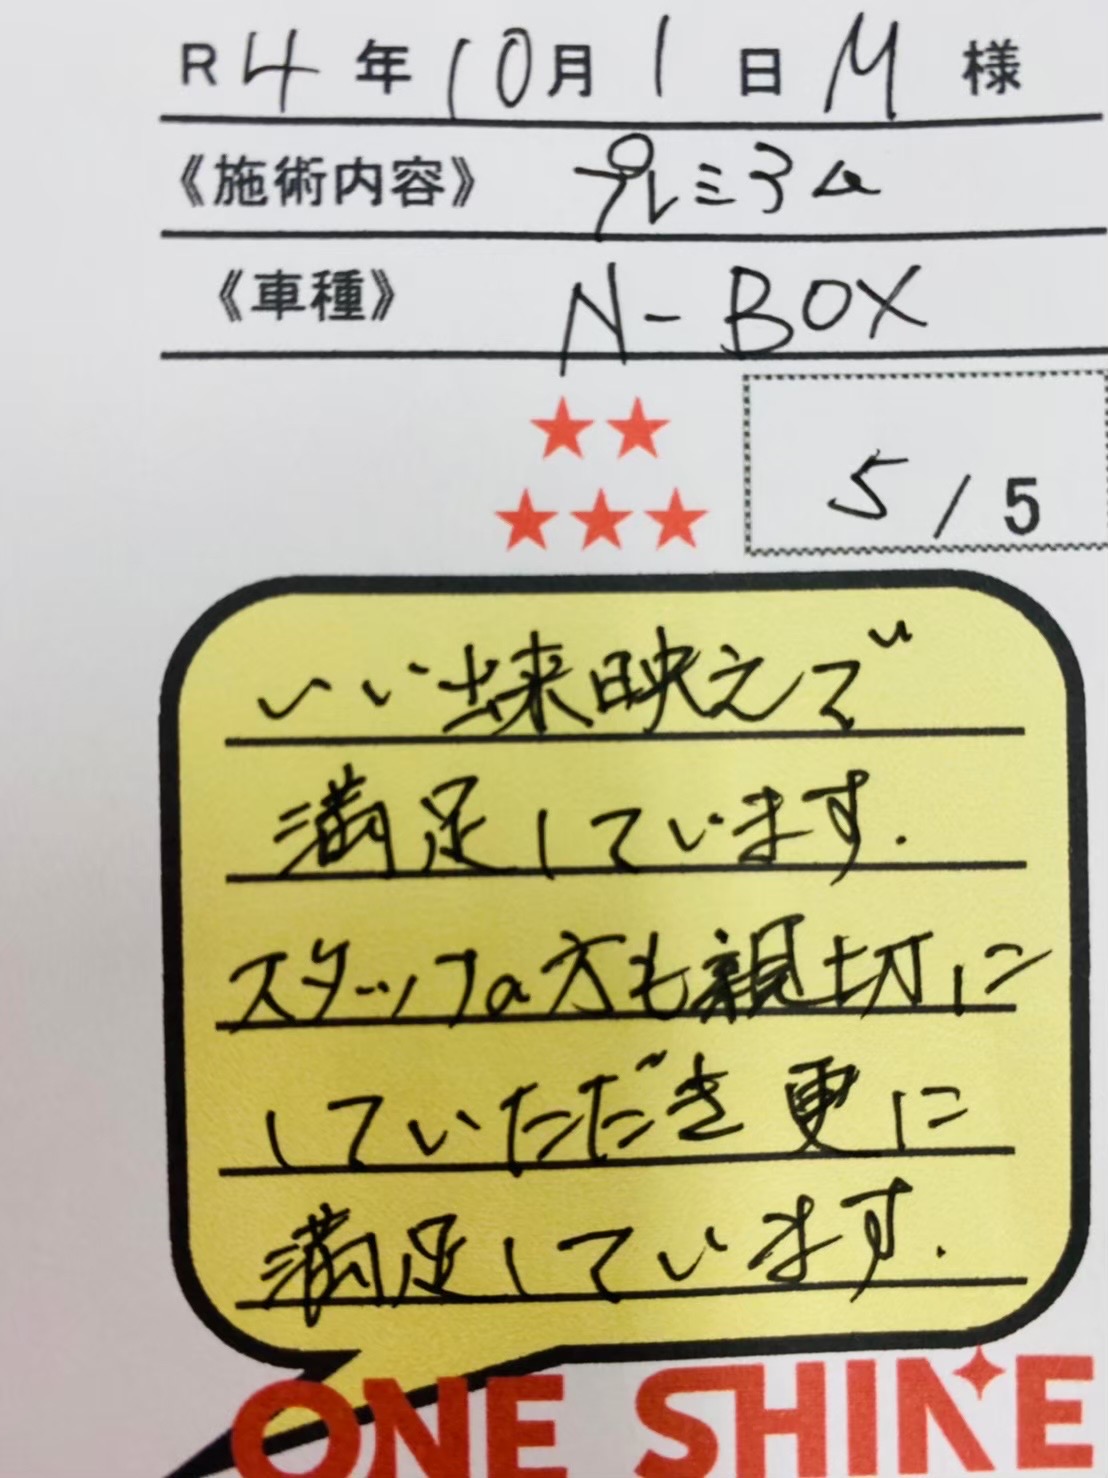 R4年10月1日M様
《施術内容》 プレミアム
《車種》 N-BOX
★★
★★★
5/5
いい出来映えで
満足しています.
スタッフの方も親切に
していただき更に
満足しています.
ONE SHINE